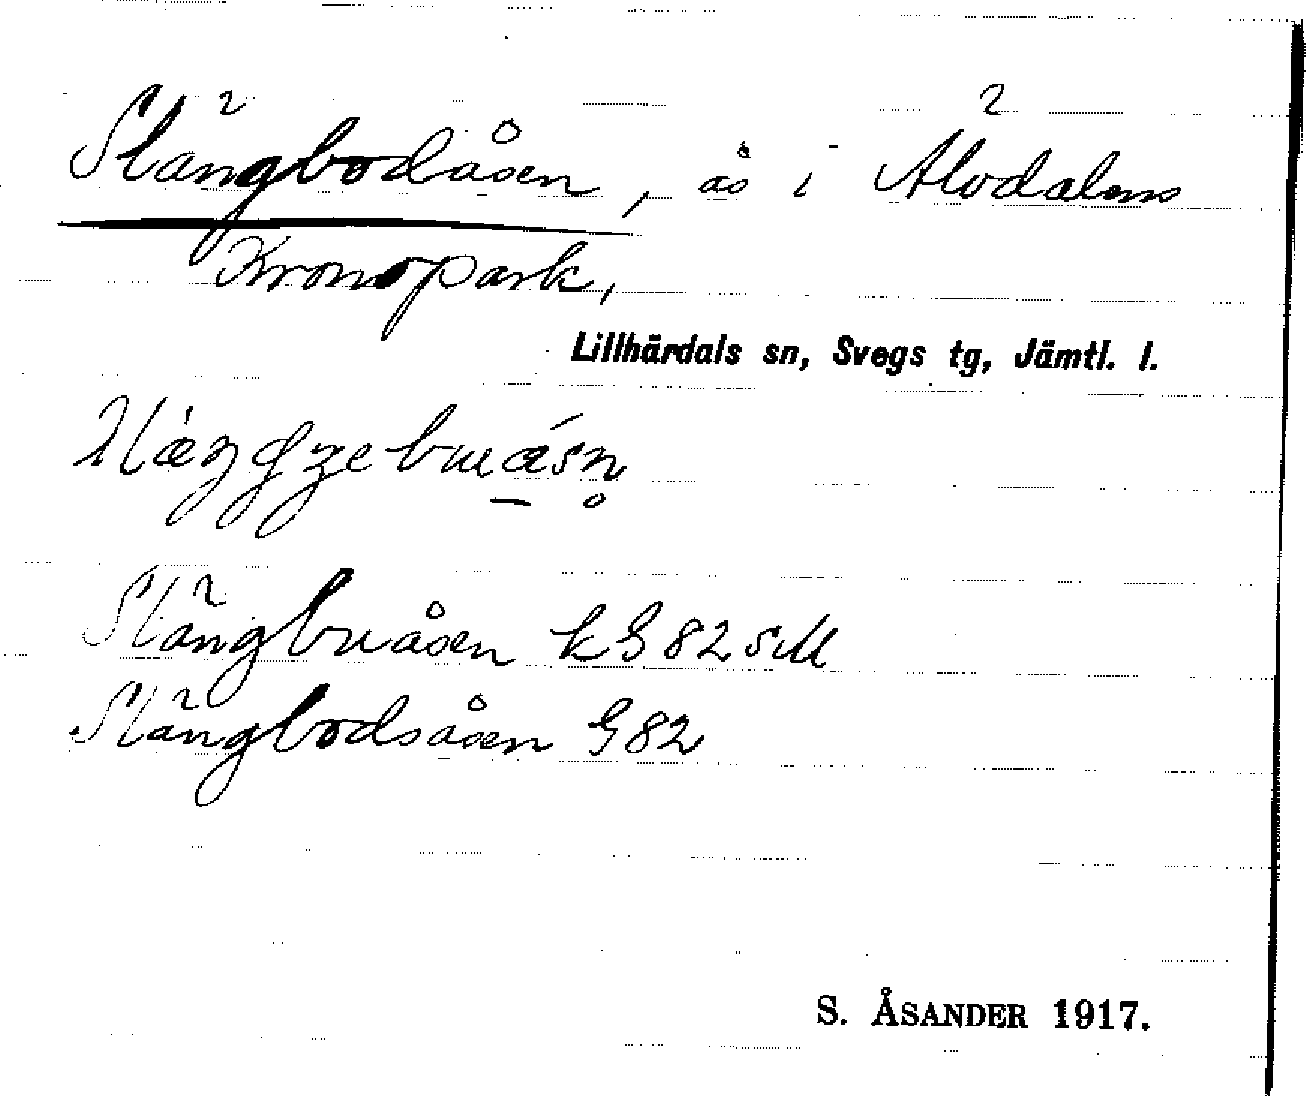 Slängbodåsen, ås i Älvdalens
Kronopark,
Lillhärdals sn, Svegs tg, Jämtl. l.
Slängbuåsen kG82sM
Slängbodsåsen G82
S. ÅSANDER 1917.